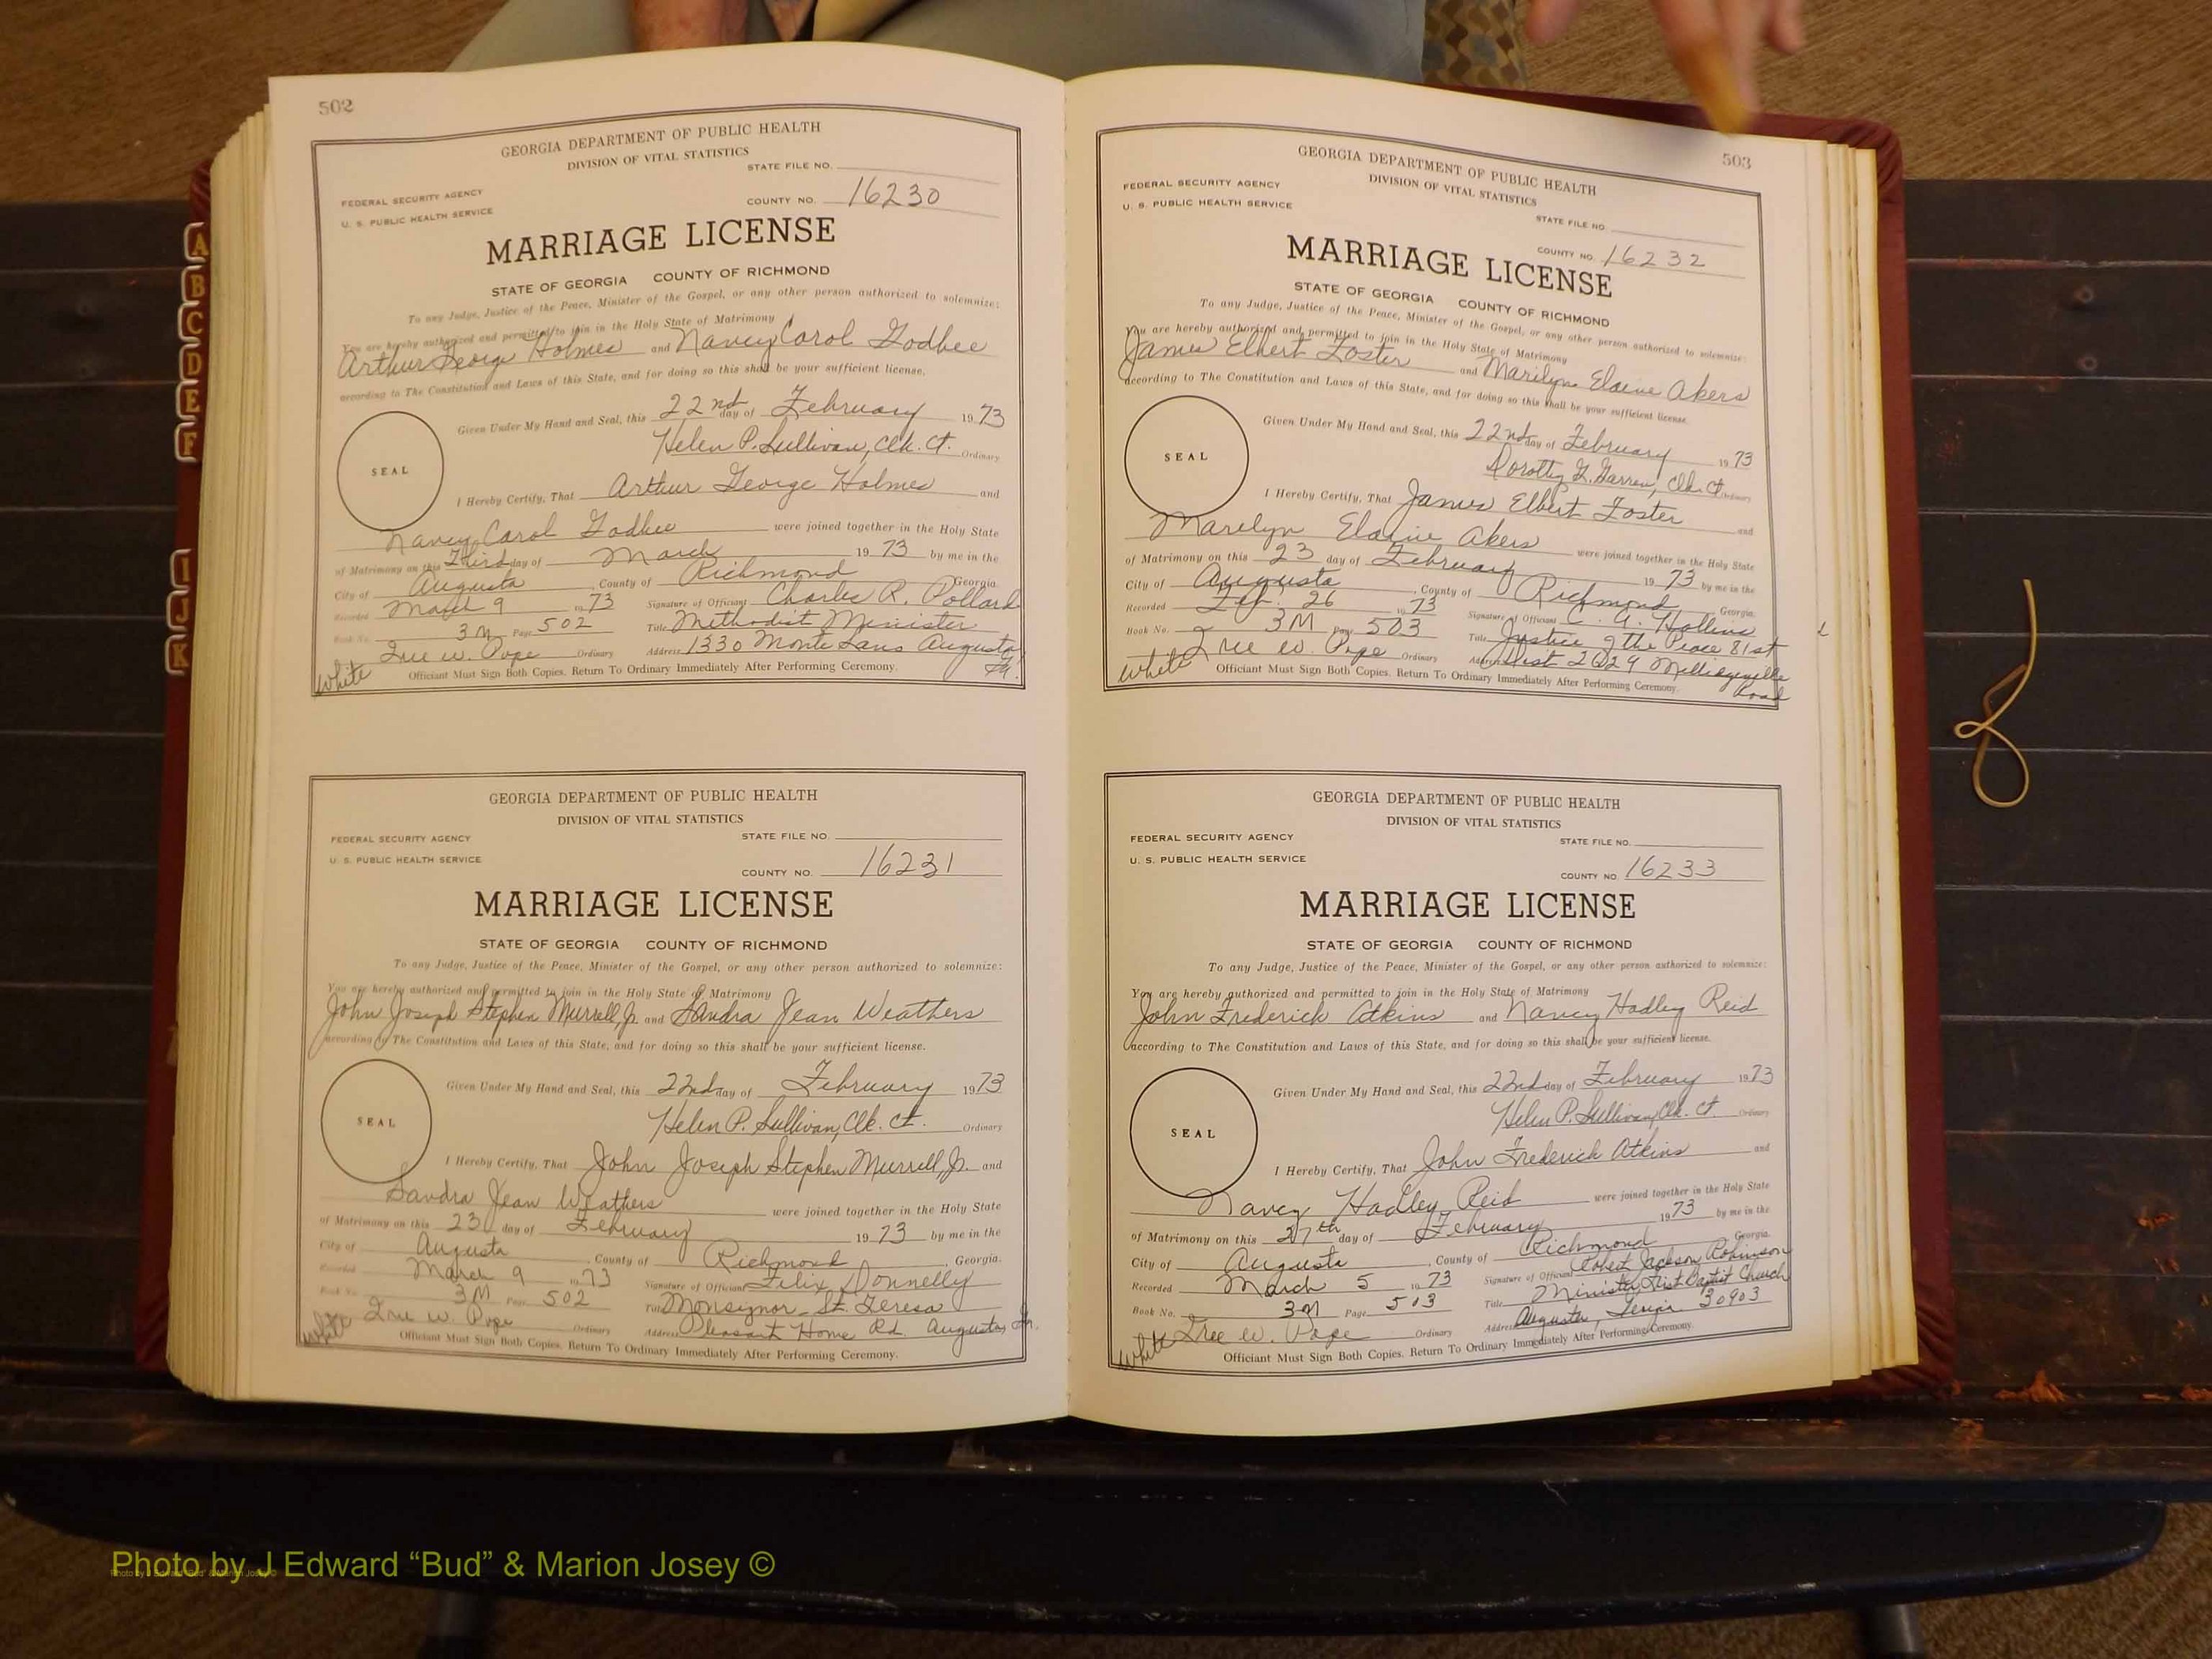 502
GEORGIA DEPARTMENT OF PUBLIC HEALTH
DIVISION OF VITAL STATISTICS
STATE FILE NO.
FEDERAL SECURITY AGENCY
U. S. PUBLIC HEALTH SERVICE
COUNTY NO. 16230
MARRIAGE LICENSE
STATE OF GEORGIA COUNTY OF RICHMOND
To any Judge, Justice of the Peace, Minister of the Gospel, or any other person authorized to solemnize:
You are hereby authorized and permitted to join in the Holy State of Matrimony
Arthur George Holmes and Nancy Carol Godbee
according to The Constitution and Laws of this State, and for doing so this shall be your sufficient license.
Given Under My Hand and Seal, this 22nd day of February 1973
Helen P. Sullivan, Clk. Ct. Ordinary
SEAL
I Hereby Certify, That Arthur George Holmes and
Nancy Carol Godbee were joined together in the Holy State
of Matrimony on this Third day of March 1973 by me in the
City of Augusta, County of Richmond Georgia
Recorded March 9 1973 Signature of Officiant Charles R. Pollard
Book No. 3M Page 502 Title Methodist Minister
Ordinary Address 1330 Monte Sano Augusta
Ga.
White Officiant Must Sign Both Copies. Return To Ordinary Immediately After Performing Ceremony.
GEORGIA DEPARTMENT OF PUBLIC HEALTH
DIVISION OF VITAL STATISTICS
FEDERAL SECURITY AGENCY STATE FILE NO.
U. S. PUBLIC HEALTH SERVICE
COUNTY NO. 16231
MARRIAGE LICENSE
STATE OF GEORGIA COUNTY OF RICHMOND
To any Judge, Justice of the Peace, Minister of the Gospel, or any other person authorized to solemnize:
You are hereby authorized and permitted to join in the Holy State of Matrimony
John Joseph Stephen Murrell, Jr. and Sandra Jean Weathers
according to The Constitution and Laws of this State, and for doing so this shall be your sufficient license.
Given Under My Hand and Seal, this 22nd day of February 1973
Helen P. Sullivan, Clk. Ct. Ordinary
SEAL
I Hereby Certify, That John Joseph Stephen Murrell, Jr. and
Sandra Jean Weathers were joined together in the Holy State
of Matrimony on this 23 day of February 1973 by me in the
City of Augusta, County of Richmond, Georgia.
Recorded March 9 1973 Signature of Officiant Felix Donnelly
Book No. 3M Page 502 Title Monsignor - St. Teresa
Ordinary Address Pleasant Home Rd. Augusta, Ga.
White Officiant Must Sign Both Copies. Return To Ordinary Immediately After Performing Ceremony.
503
GEORGIA DEPARTMENT OF PUBLIC HEALTH
DIVISION OF VITAL STATISTICS
FEDERAL SECURITY AGENCY
U. S. PUBLIC HEALTH SERVICE
STATE FILE NO.
COUNTY NO. 16232
MARRIAGE LICENSE
STATE OF GEORGIA COUNTY OF RICHMOND
To any Judge, Justice of the Peace, Minister of the Gospel, or any other person authorized to solemnize:
You are hereby authorized and permitted to join in the Holy State of Matrimony
James Elbert Foster and Marilyn Elaine Akers
according to The Constitution and Laws of this State, and for doing so this shall be your sufficient license.
Given Under My Hand and Seal, this 22nd day of February 1973
Dorothy Clk. Ct. Ordinary
SEAL
I Hereby Certify, That James Elbert Foster and
Marilyn Elaine Akers were joined together in the Holy State
of Matrimony on this 23 day of February 1973 by me in the
City of Augusta, County of Richmond, Georgia.
Recorded Feb. 26 1973 Signature of Officiant C. A. Hollins
Book No. 3M Page 503 Title Justice of the Peace 81st
Ordinary Address Dist 2629 Milledgeville
Road
White Officiant Must Sign Both Copies. Return To Ordinary Immediately After Performing Ceremony.
GEORGIA DEPARTMENT OF PUBLIC HEALTH
DIVISION OF VITAL STATISTICS
FEDERAL SECURITY AGENCY
STATE FILE NO.
U. S. PUBLIC HEALTH SERVICE
COUNTY NO. 16233
MARRIAGE LICENSE
STATE OF GEORGIA COUNTY OF RICHMOND
To any Judge, Justice of the Peace, Minister of the Gospel, or any other person authorized to solemnize:
You are hereby authorized and permitted to join in the Holy State of Matrimony
John Frederick Atkins and Nancy Hadley Reid
according to The Constitution and Laws of this State, and for doing so this shall be your sufficient license.
Given Under My Hand and Seal, this 22nd day of February 1973
Helen P. Sullivan, Clk. Ct. Ordinary
SEAL
I Hereby Certify, That John Frederick Atkins and
Nancy Hadley Reid were joined together in the Holy State
of Matrimony on this 27th day of February 1973 by me in the
City of Augusta, County of Richmond Georgia.
Recorded March 5 1973 Signature of Officiant Robert Jackson Robinson
Book No. 3M Page 503 Title Minister, First Baptist Church
Ordinary Address Augusta, Georgia 30903
White Officiant Must Sign Both Copies. Return To Ordinary Immediately After Performing Ceremony.
A
B
C
D
E
F
I
J
K
Photo by J Edward “Bud” & Marion Josey ©